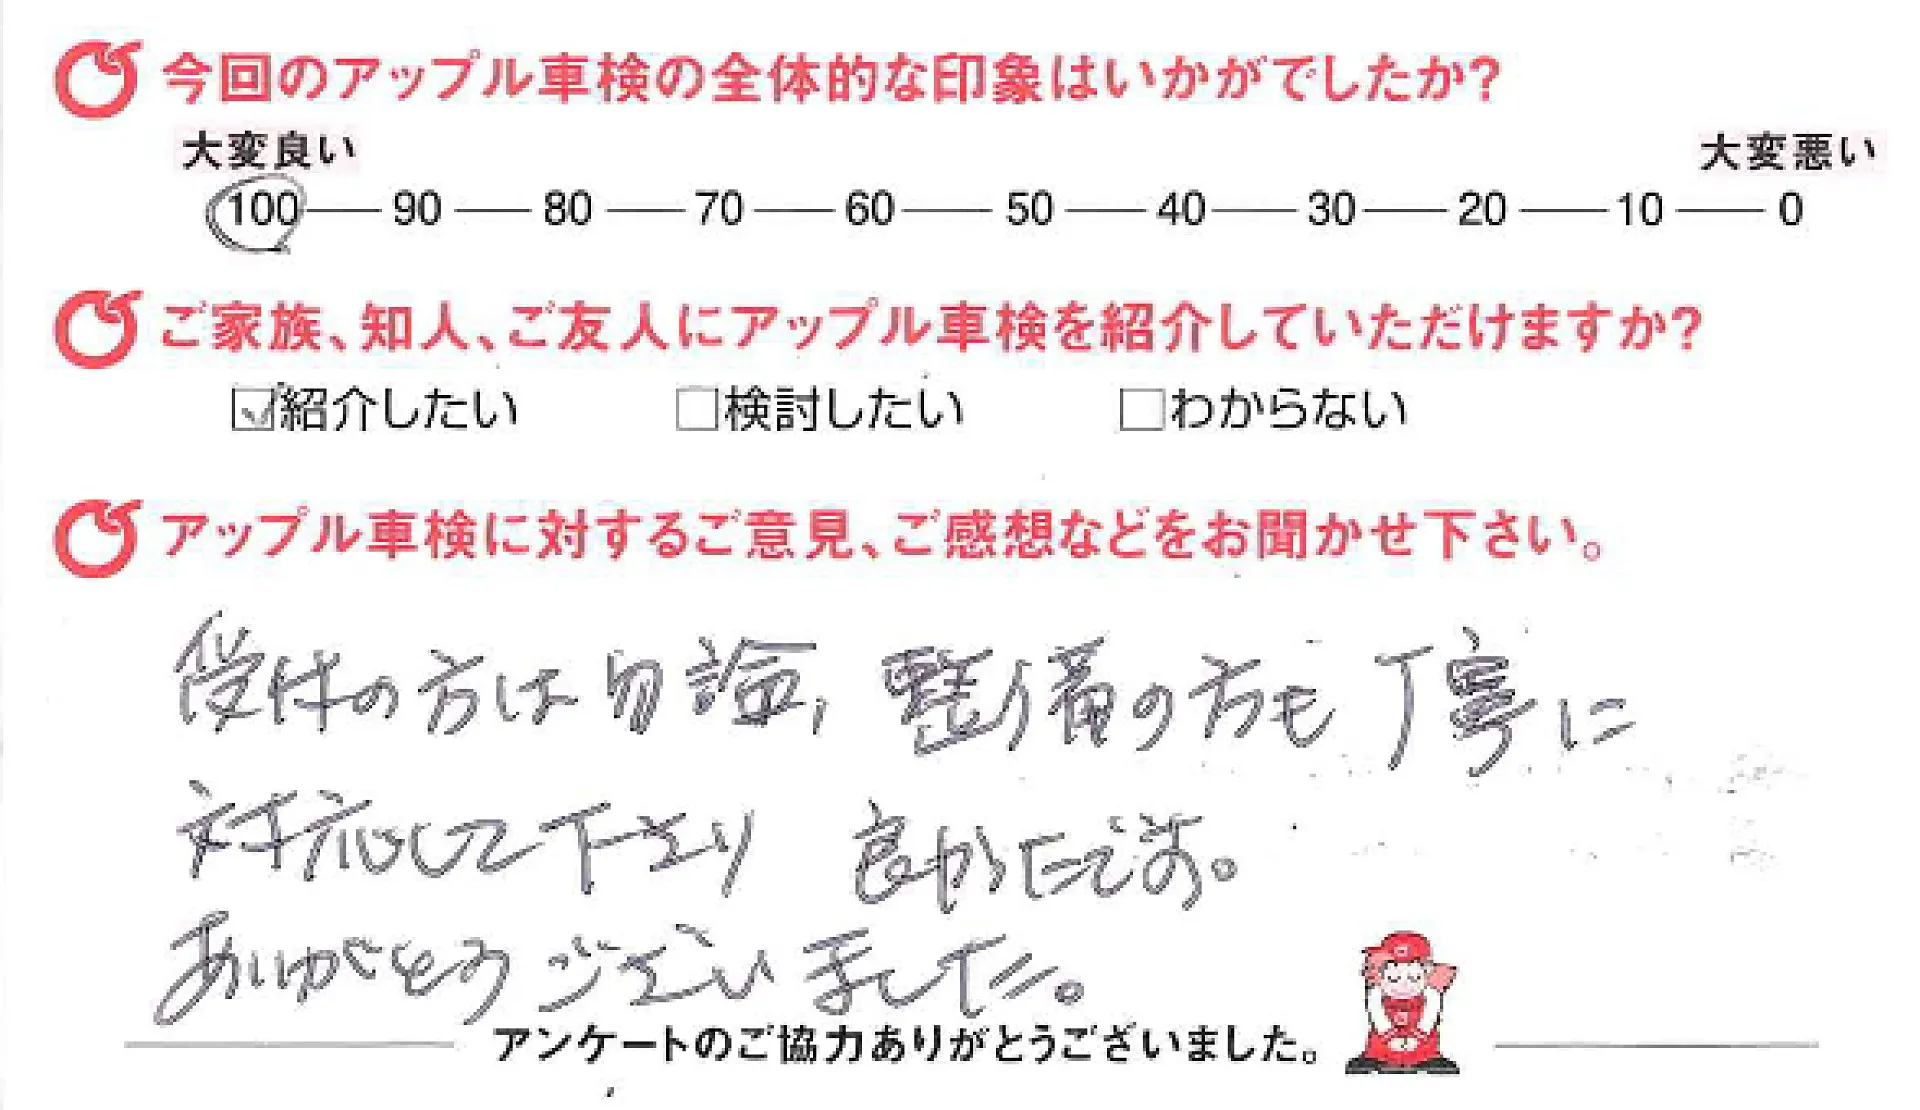 今回のアップル車検の全体的な印象はいかがでしたか?
大変良い 大変悪い
100 — 90 — 80 — 70 — 60 — 50 — 40 — 30 — 20 — 10 — 0
ご家族、知人、ご友人にアップル車検を紹介していただけますか?
☑紹介したい □検討したい □わからない
アップル車検に対するご意見、ご感想などをお聞かせ下さい。
の方は勿論、整備の方も丁寧に
対応して下さり 良かたです。
ありがとうございました。
アンケートのご協力ありがとうございました。